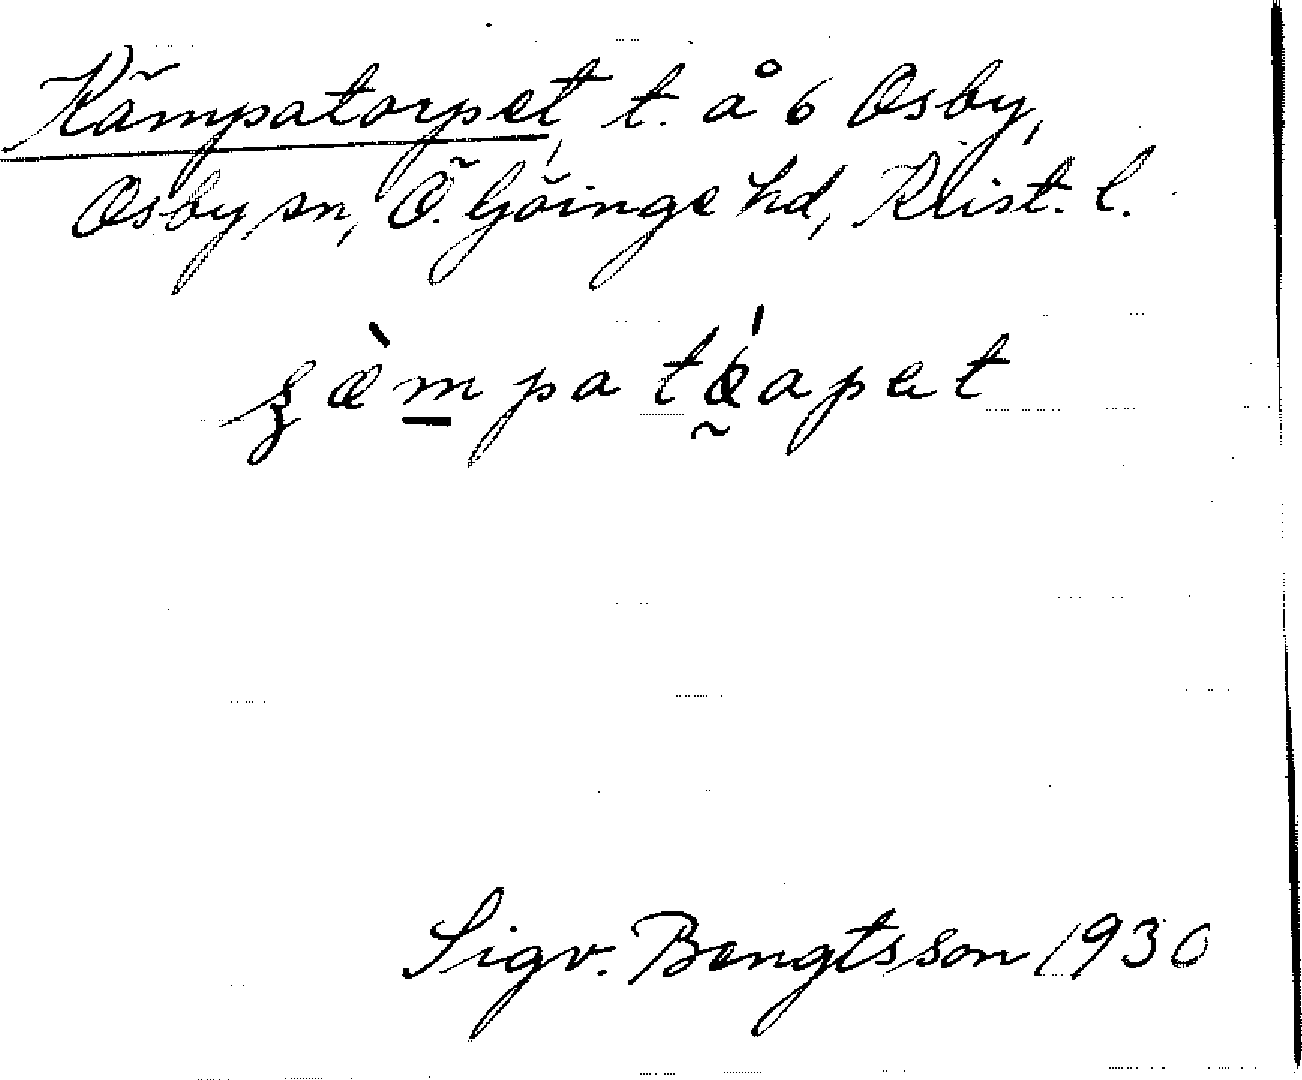 Kämpatorpet, t. å 6 Osby,
Osby sn, Ö. Göinge hd, Krist. l.
Sigv. Bengtsson 1930